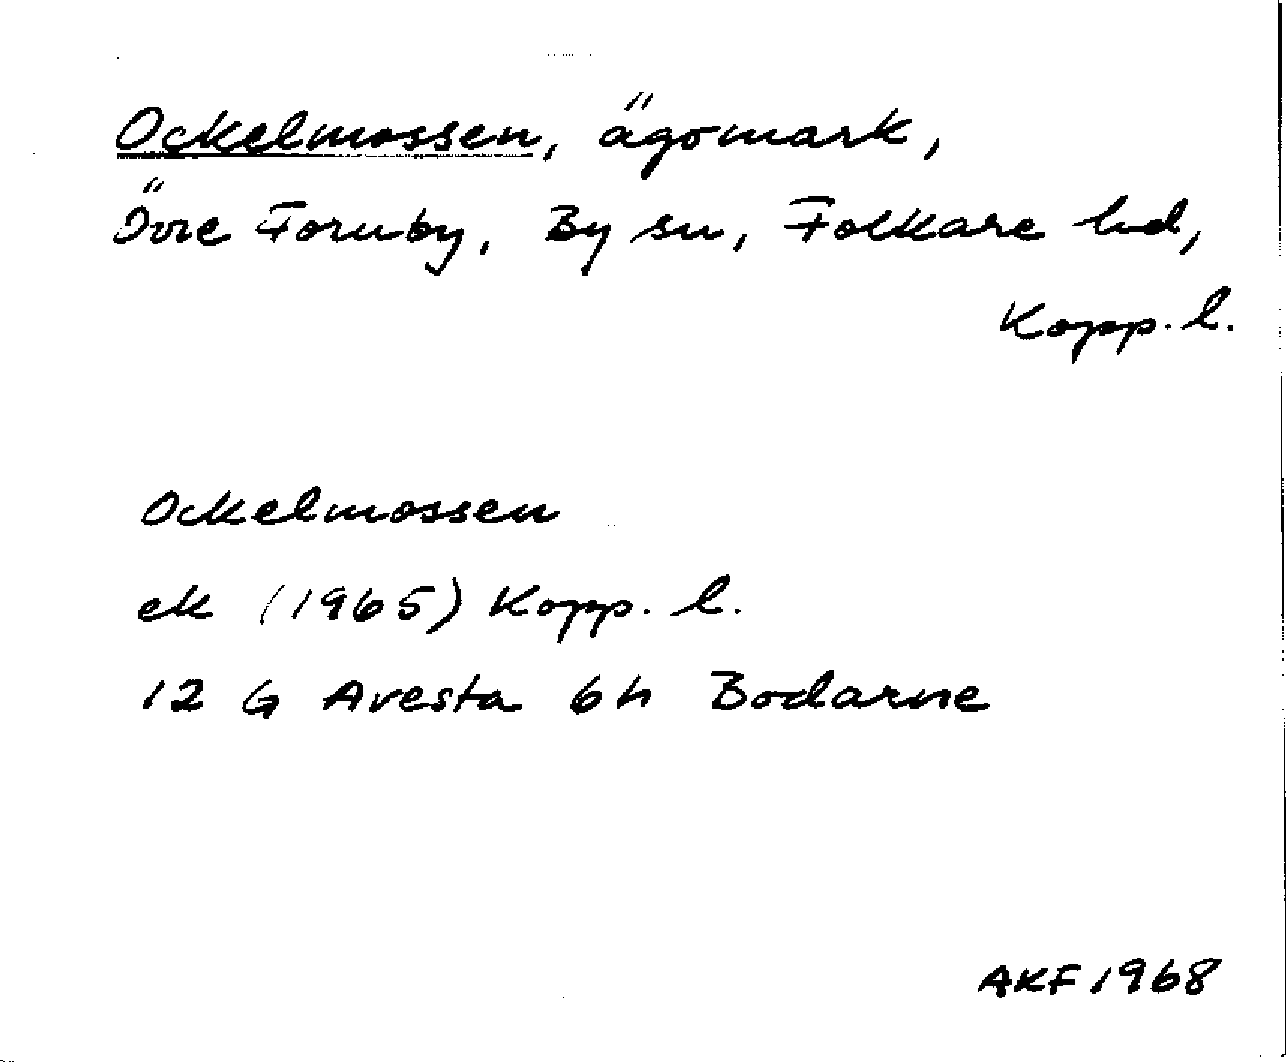 Ockelmossen, ägomark,
Övre Fornby, By sn, Folkare hd,
Kopp. l.
Ockelmossen
ek (1965) Kopp. l.
12 G Avesta 6h Bodarne
AKF 1968